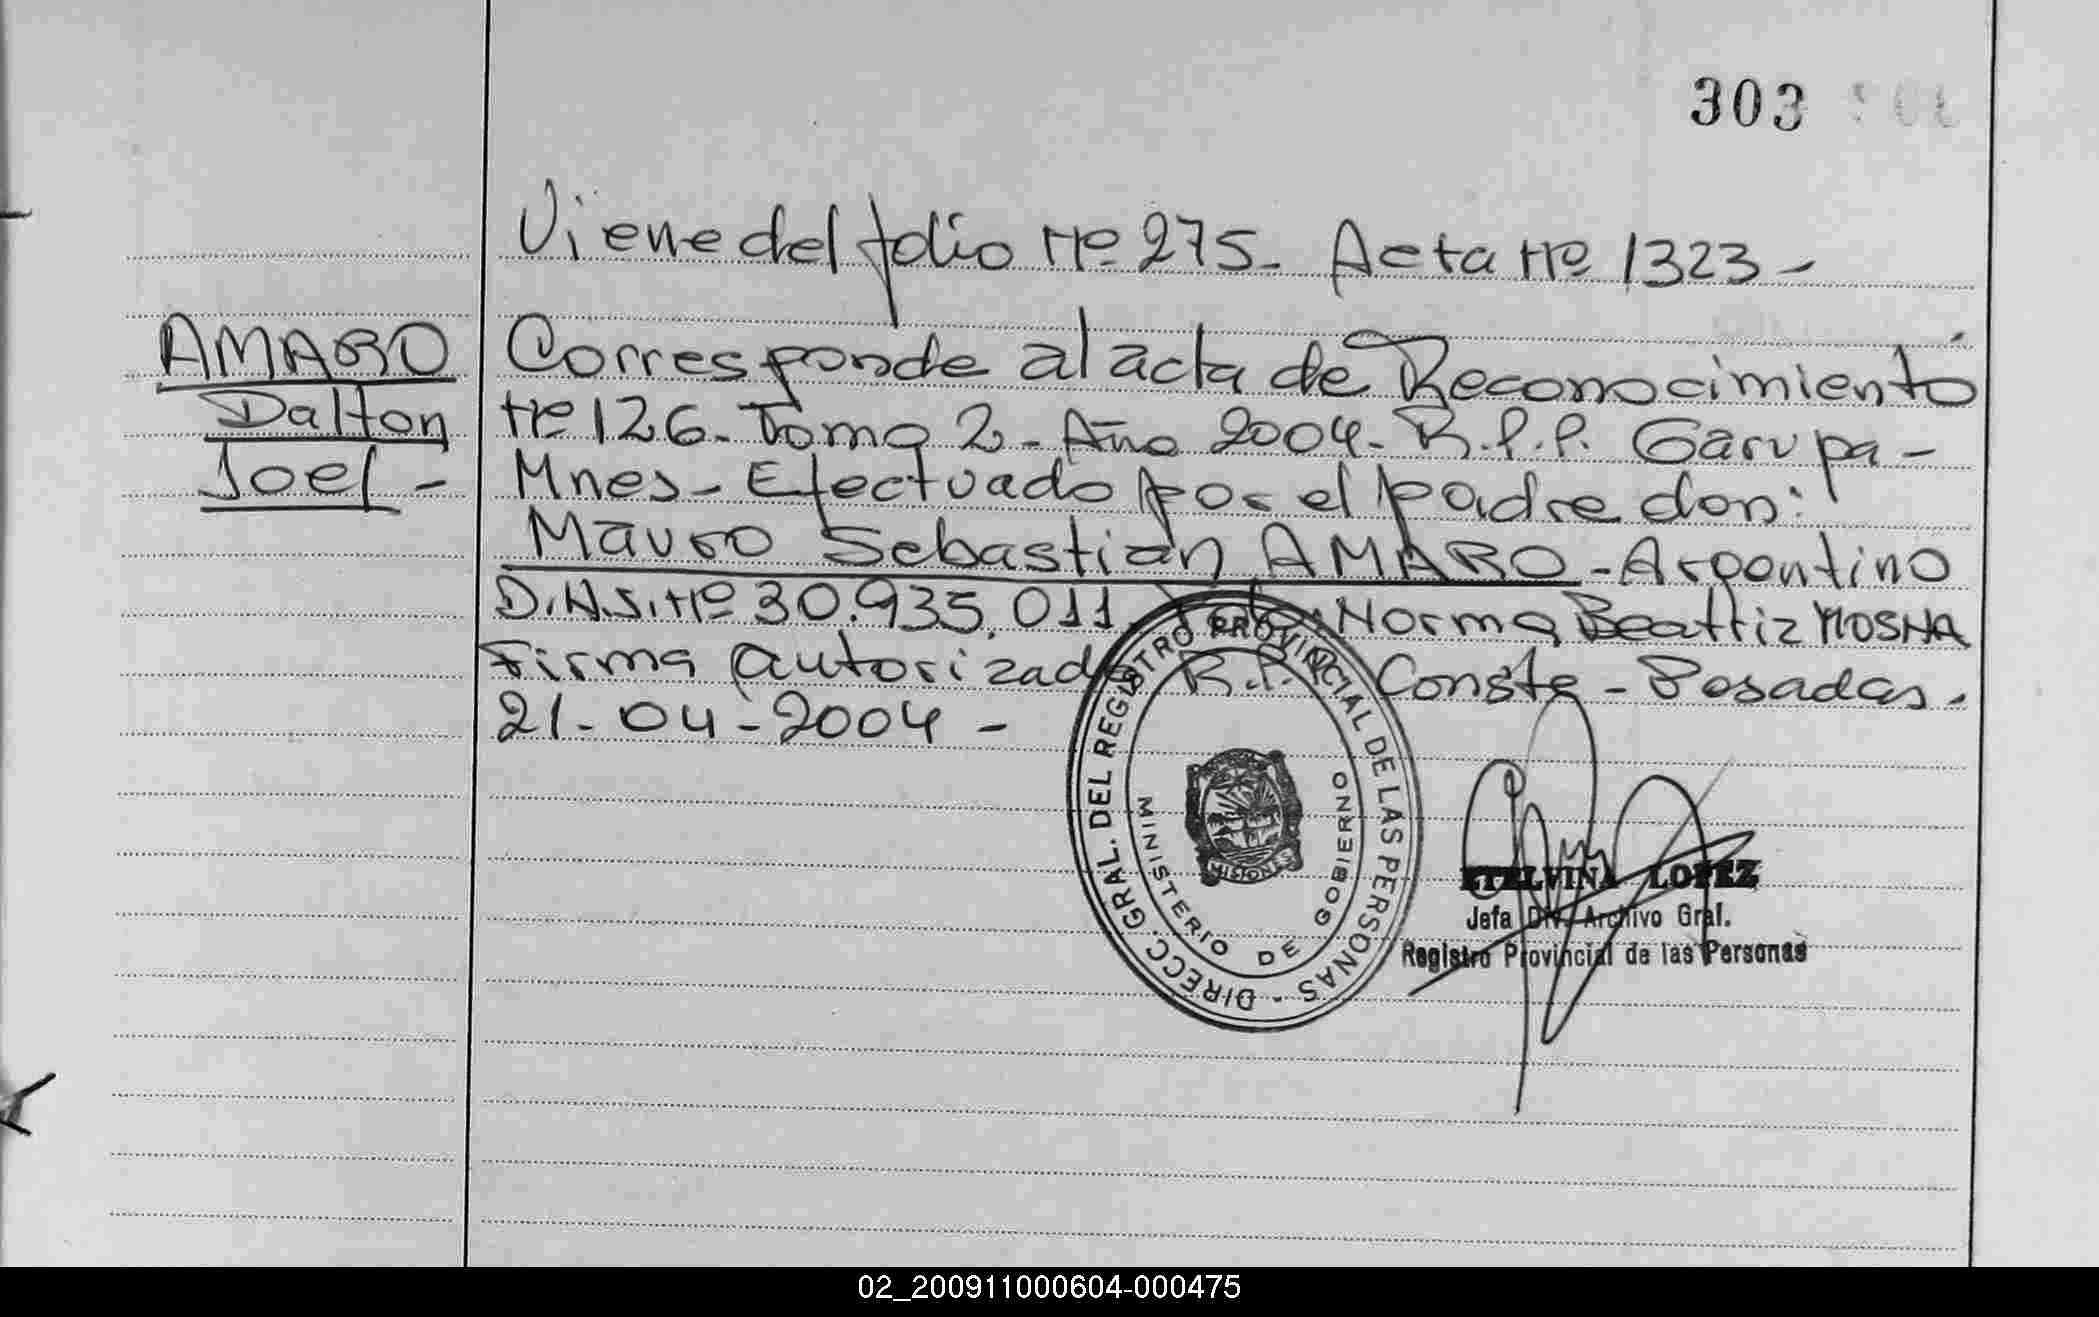 303
Viene del folio Nº 275- Acta Nº 1323-
AMARO
Dalton
Joel-
Corresponde al acta de Reconocimiento
Nº 126- Tomo 2- Año 2004- R.P.P. Garupa-
Mnes- Efectuado por el padre don:
Mauro Sebastian AMARO-Argentino
D.N.I. Nº 30.935.011 Norma Beattiz
Firma autorizada R.P.P. Conste-Posadas.
21-04-2004-
DIRECC. GRAL. DEL REGISTRO PROVINCIAL DE LAS PERSONAS -
MINISTERIO DE GOBIERNO
MISIONES
ETELVINA LOPEZ
Jefa Div. Archivo Gral.
Registro Provincial de las Personas
02_200911000604-000475